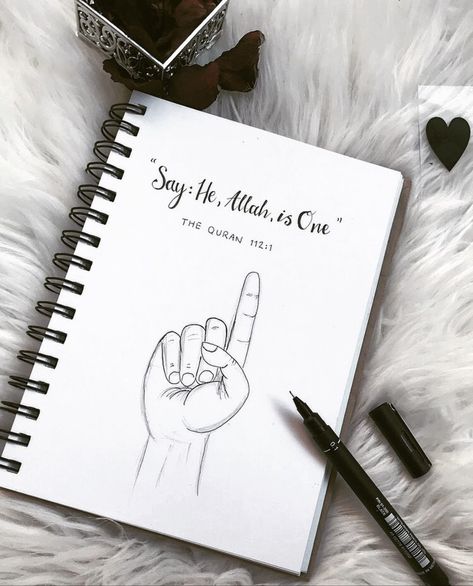 “Say: He, Allah, is One”
THE QURAN 112:1